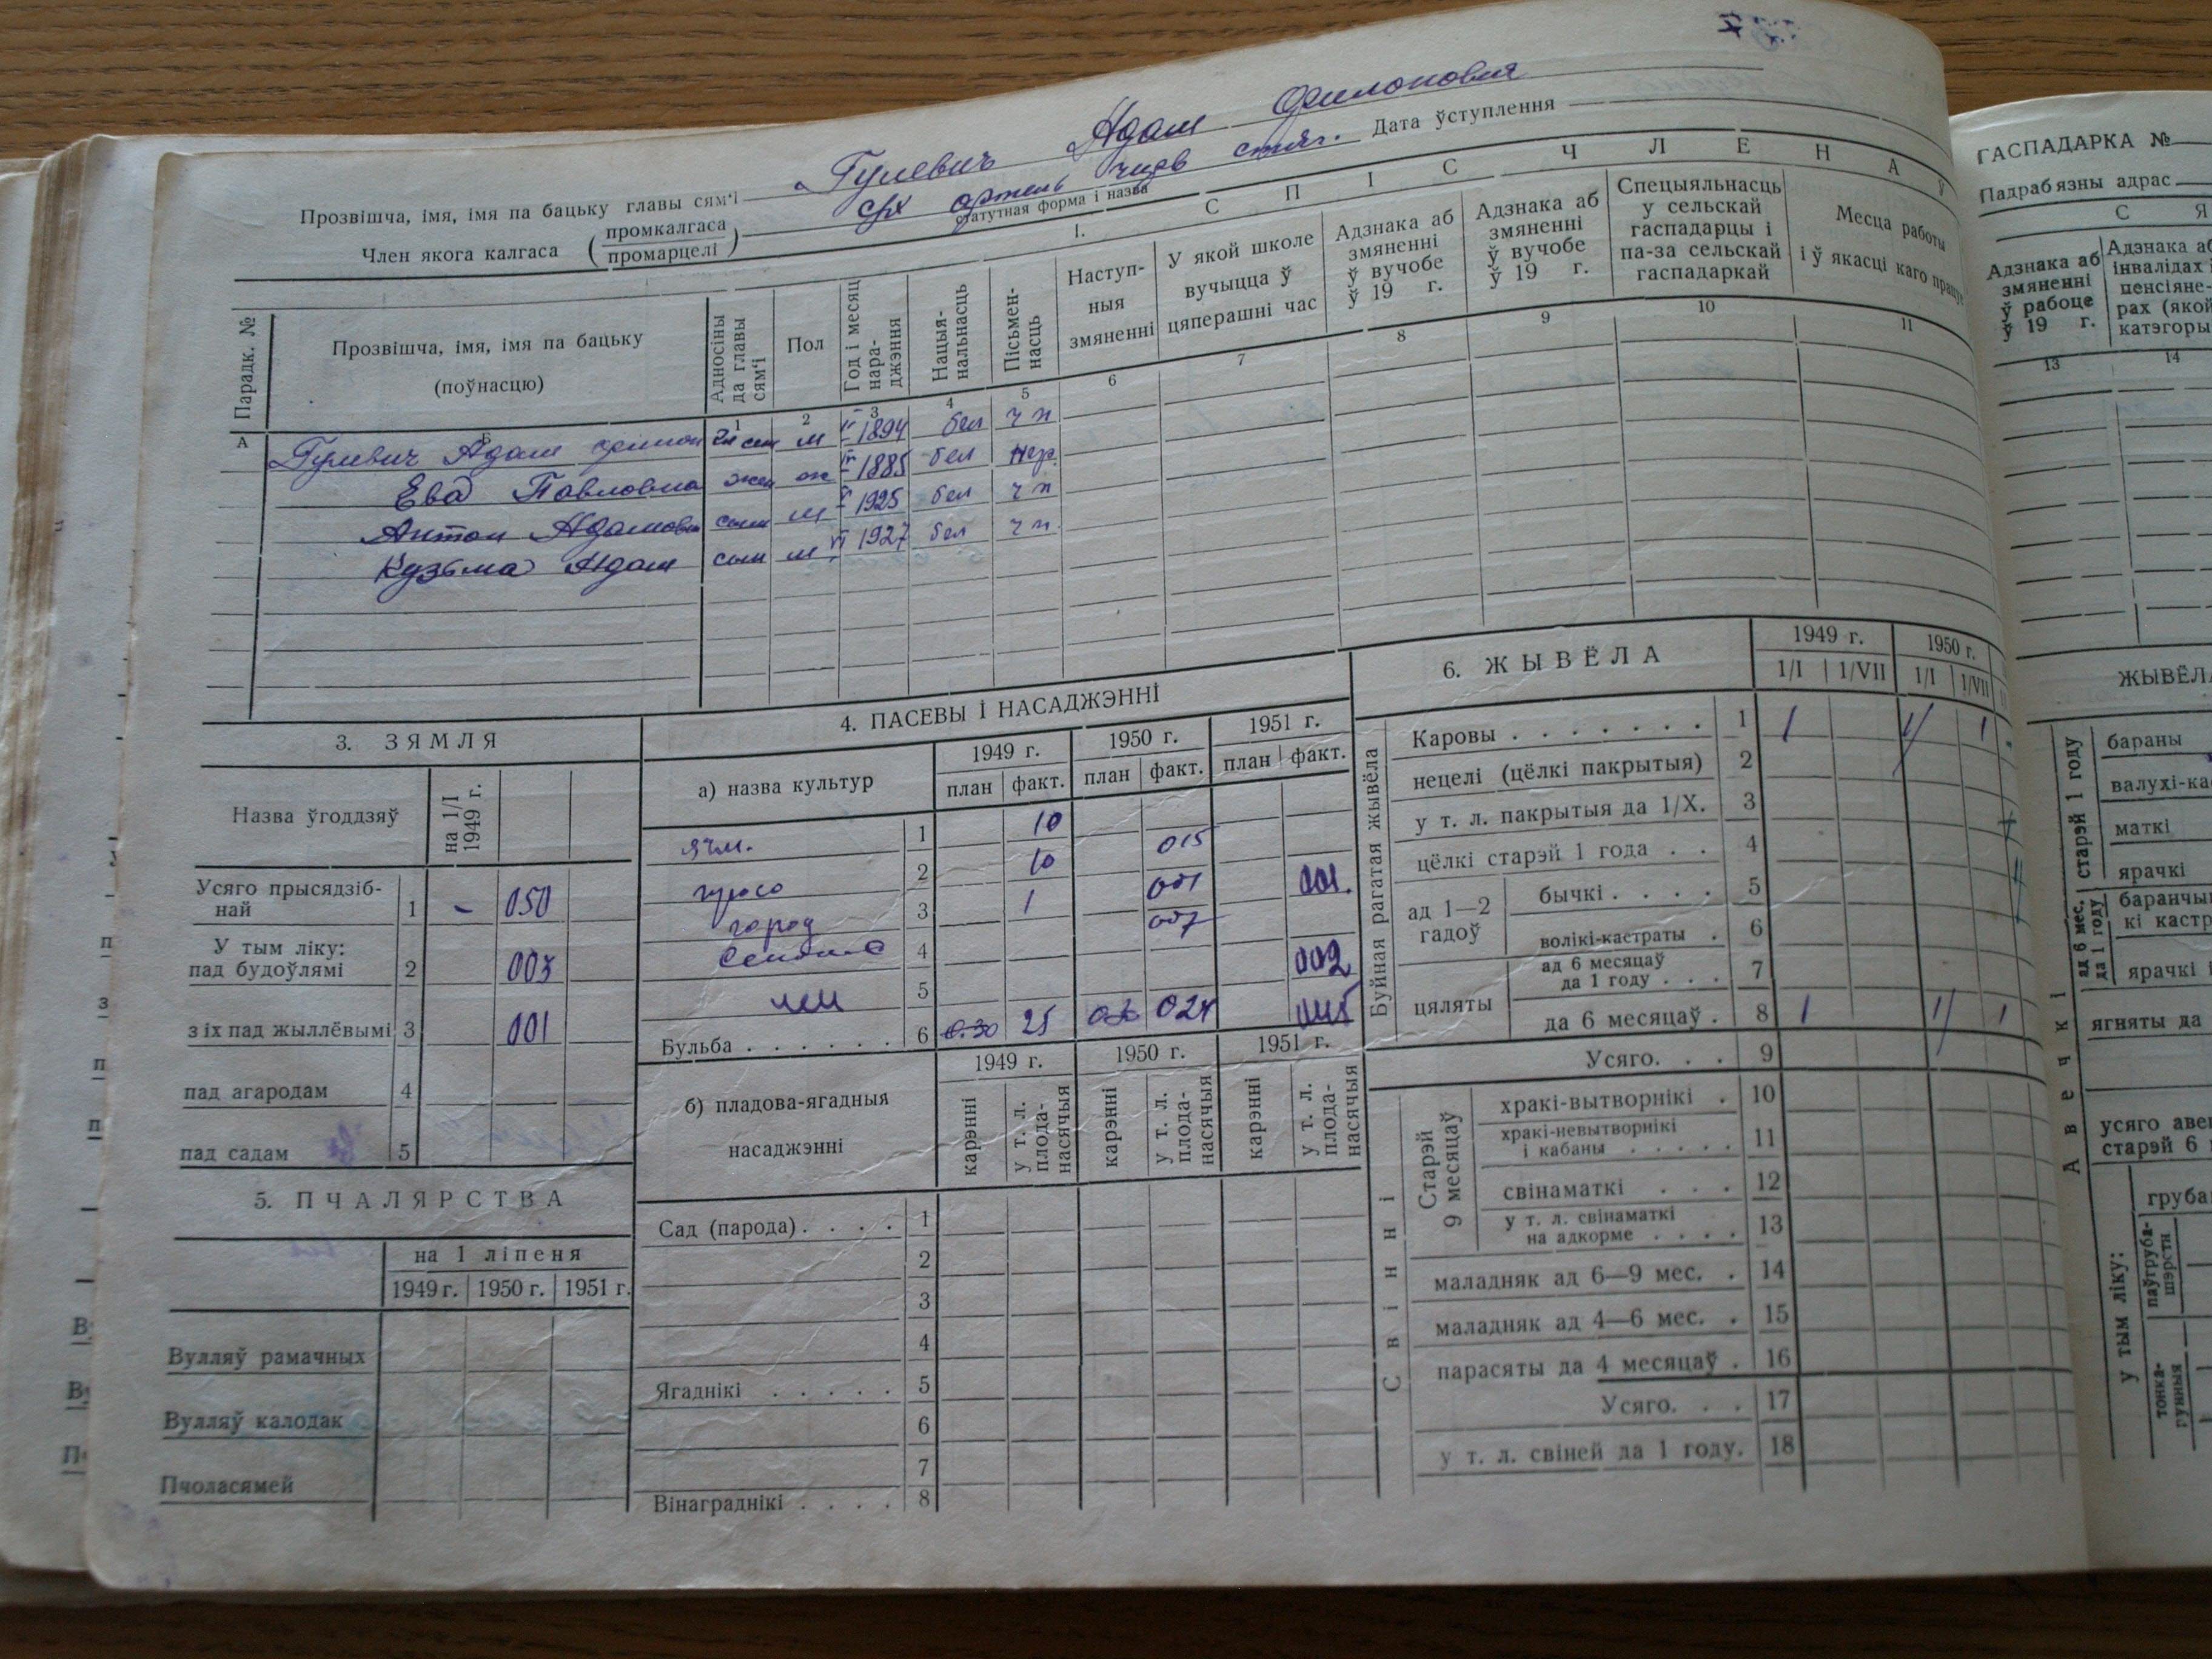 Прозвішча, імя, імя па бацьку главы сям'і Гулевич Адам Филипович
Член якога калгаса (промкалгаса промарцелі) с/х артель
статутная форма і назва
Дата ўступлення
1. СПІС ЧЛЕНАЎ
Парадк. №
Прозвішча, імя, імя па бацьку (поўнасцю)
Адносіны да главы сям'і
Пол
Год і месяц нараджэння
Нацыянальнасць
Пісьменнасць
Наступныя змяненні
У якой школе вучыцца ў цяперашні час
Адзнака аб змяненні ў вучобе ў 19 г.
Адзнака аб змяненні ў вучобе ў 19 г.
Спецыяльнасць у сельскай гаспадарцы і па-за сельскай гаспадаркай
Месца работы і ў якасці каго працуе
А 1 2 3 4 5 6 7 8 9 10 11
Гулевич Адам м 1894 бел ч п
Ева Павловна жен ж 1885 бел нег.
Антон Адамов сын м 1925 бел ч п
Кузьма Адам сын м VI 1927 бел ч п
3. ЗЯМЛЯ
Назва ўгоддзяў
на 1/I 1949 г.
Усяго прысядзібнай 1 - 050
У тым ліку: пад будоўлямі 2 003
з іх пад жыллёвымі 3 001
пад агародам 4
пад садам 5
5. ПЧАЛЯРСТВА
на 1 ліпеня
1949 г. 1950 г. 1951 г.
Вулляў рамачных
Вулляў калодак
Пчоласямей
4. ПАСЕВЫ І НАСАДЖЭННІ
а) назва культур
1949 г. 1950 г. 1951 г.
план факт. план факт. план факт.
ячм. 1 10 015
просо 2 10 001 001.
город 3 1 007
4 002
5
Бульба . . . . . . 6 0.30 25 024
1949 г. 1950 г. 1951 г.
б) пладова-ягадныя насаджэнні
карэнні
у т. л. пладанасячыя
карэнні
у т. л. пладанасячыя
карэнні
у т. л. пладанасячыя
Сад (парода) . . . . 1
2
3
4
Ягаднікі . . . . . 5
6
7
Вінаграднікі . . . . 8
6. ЖЫВЁЛА
1949 г. 1950 г.
1/I 1/VII 1/I 1/VII
Буйная рагатая жывёла
Каровы . . . . . . . 1 1 1 1
нецелі (цёлкі пакрытыя) 2
у т. л. пакрытыя да 1/X. 3
цёлкі старэй 1 года . . 4
ад 1—2 гадоў
бычкі . . . . 5
волікі-кастраты . 6
цяляты
ад 6 месяцаў да 1 году . . . 7
да 6 месяцаў . 8 1 1 1
Усяго. . . 9
Свінні
Старэй 9 месяцаў
хракі-вытворнікі . 10
хракі-невытворнікі і кабаны . . . . . 11
свінаматкі . . . 12
у т. л. свінаматкі на адкорме . . . . 13
маладняк ад 6—9 мес. . 14
маладняк ад 4—6 мес. . 15
парасяты да 4 месяцаў . 16
Усяго. . . 17
у т. л. свіней да 1 году. 18
ГАСПАДАРКА №
Падрабязны адрас
С Я
Адзнака аб змяненні ў рабоце ў 19 г.
13 14
ЖЫВЁЛА
Авечкі
старэй 1 году
бараны
маткі
ярачкі
ад 6 мес. да 1 году
ягняты да
старэй 6
у тым ліку: